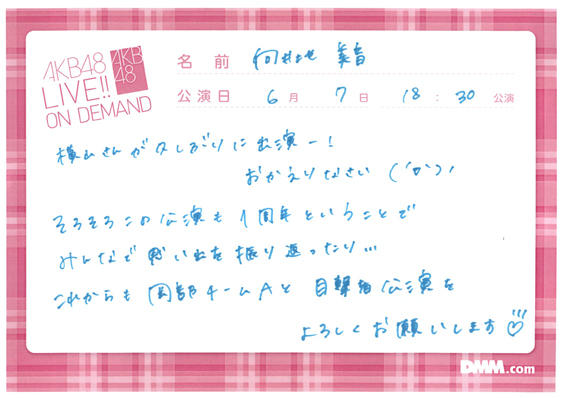 AKB48
LIVE!!
ON DEMAND
AKB
48
名前 向井地 美音
公演日 6月 7日 18:30 公演
横山さんが久しぶりに出演ー!
おかえりなさい ('ω')ノ
そろそろこの公演も1周年ということで
みんなで思い出を振り返ったり…
これからも岡部チームAと目撃者公演を
よろしくお願いします♡
DMM.com